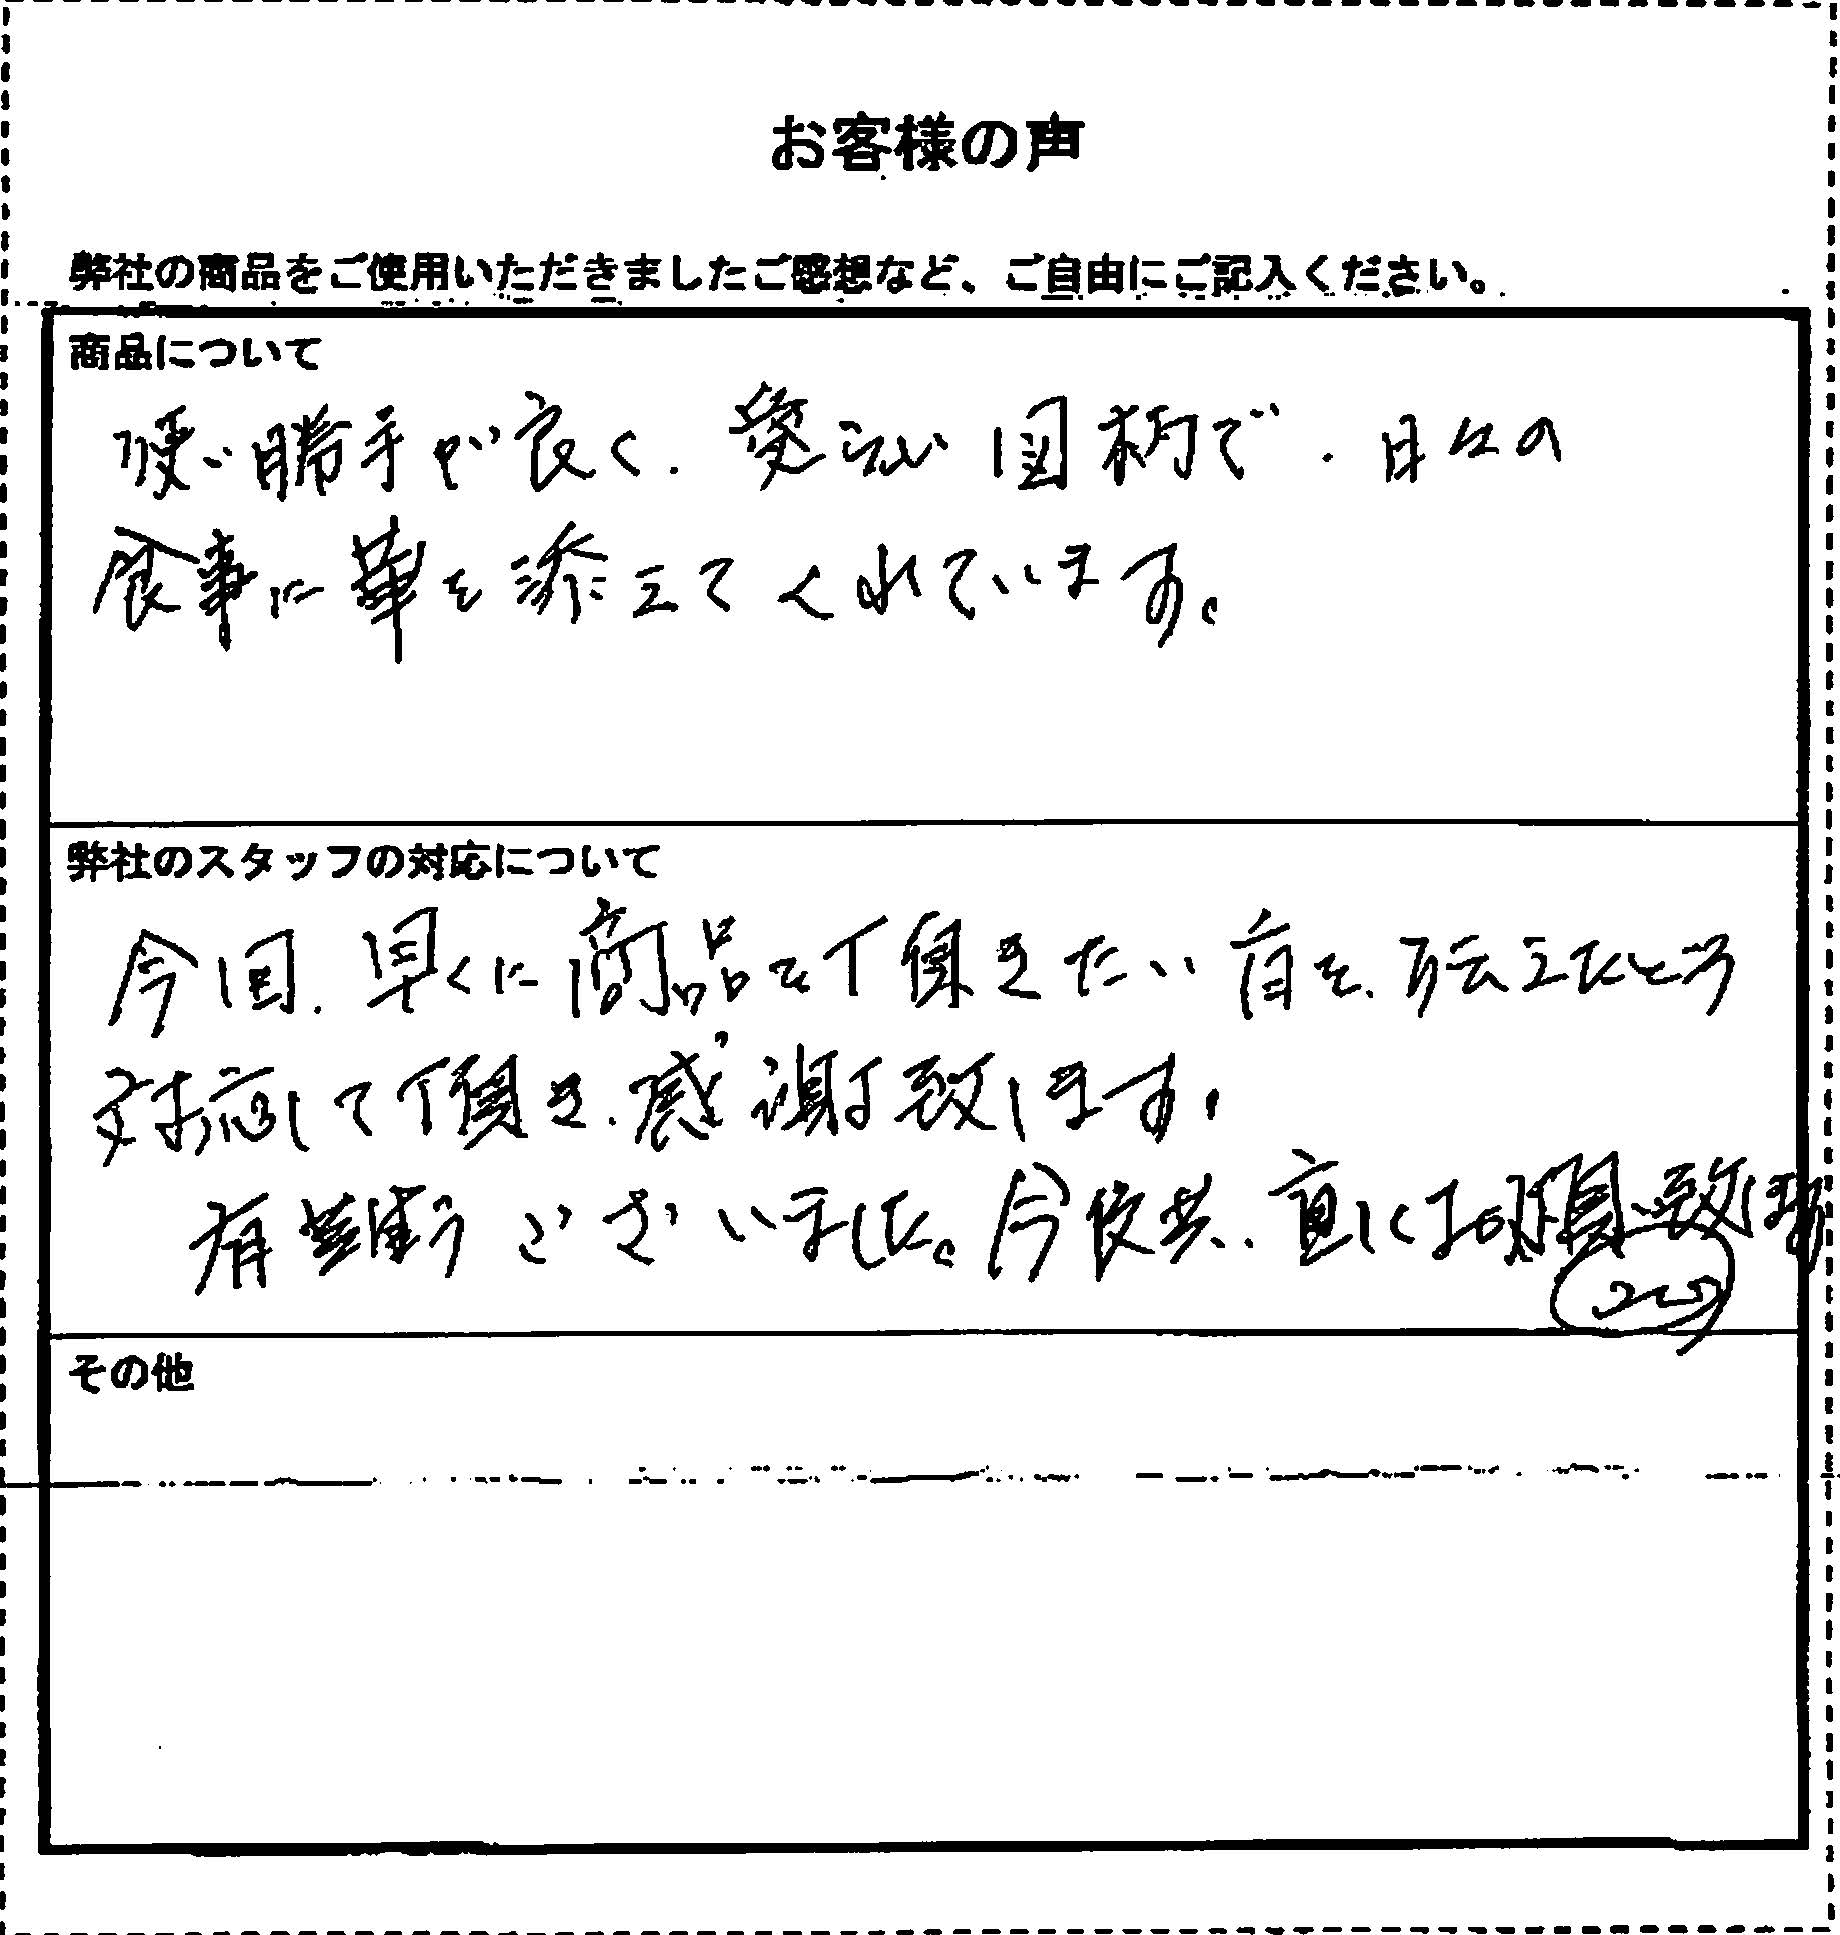 お客様の声
弊社の商品をご使用いただきましたご感想など、ご自由にご記入ください。
商品について
使い勝手が良く、愛らしい図柄で、日々の
食事に華を添えてくれています。
弊社のスタッフの対応について
今回、早くに商品を丁頂きたい旨を、伝えたところ
対応して丁頂き、感謝致します。
有難うございました。今後共、宜しくお願い致します
その他